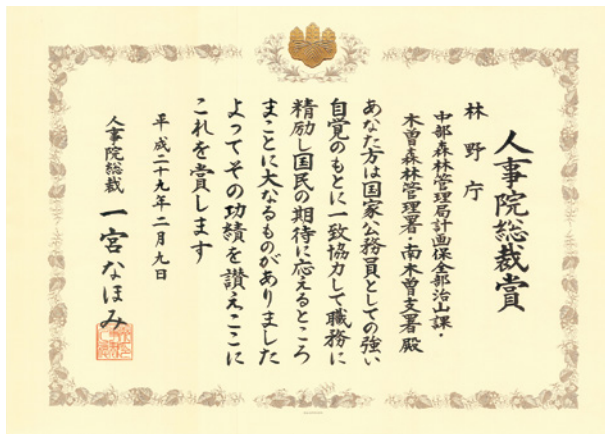 人事院総裁賞
林野庁
中部森林管理局計画保全部治山課・
木曽森林管理署・南木曽支署殿
あなた方は国家公務員としての強い
自覚のもとに一致協力して職務に
精励し国民の期待に応えるところ
まことに大なるものがありました
よってその功績を讃えここに
これを賞します
平成二十九年二月九日
人事院総裁 一宮なほみ